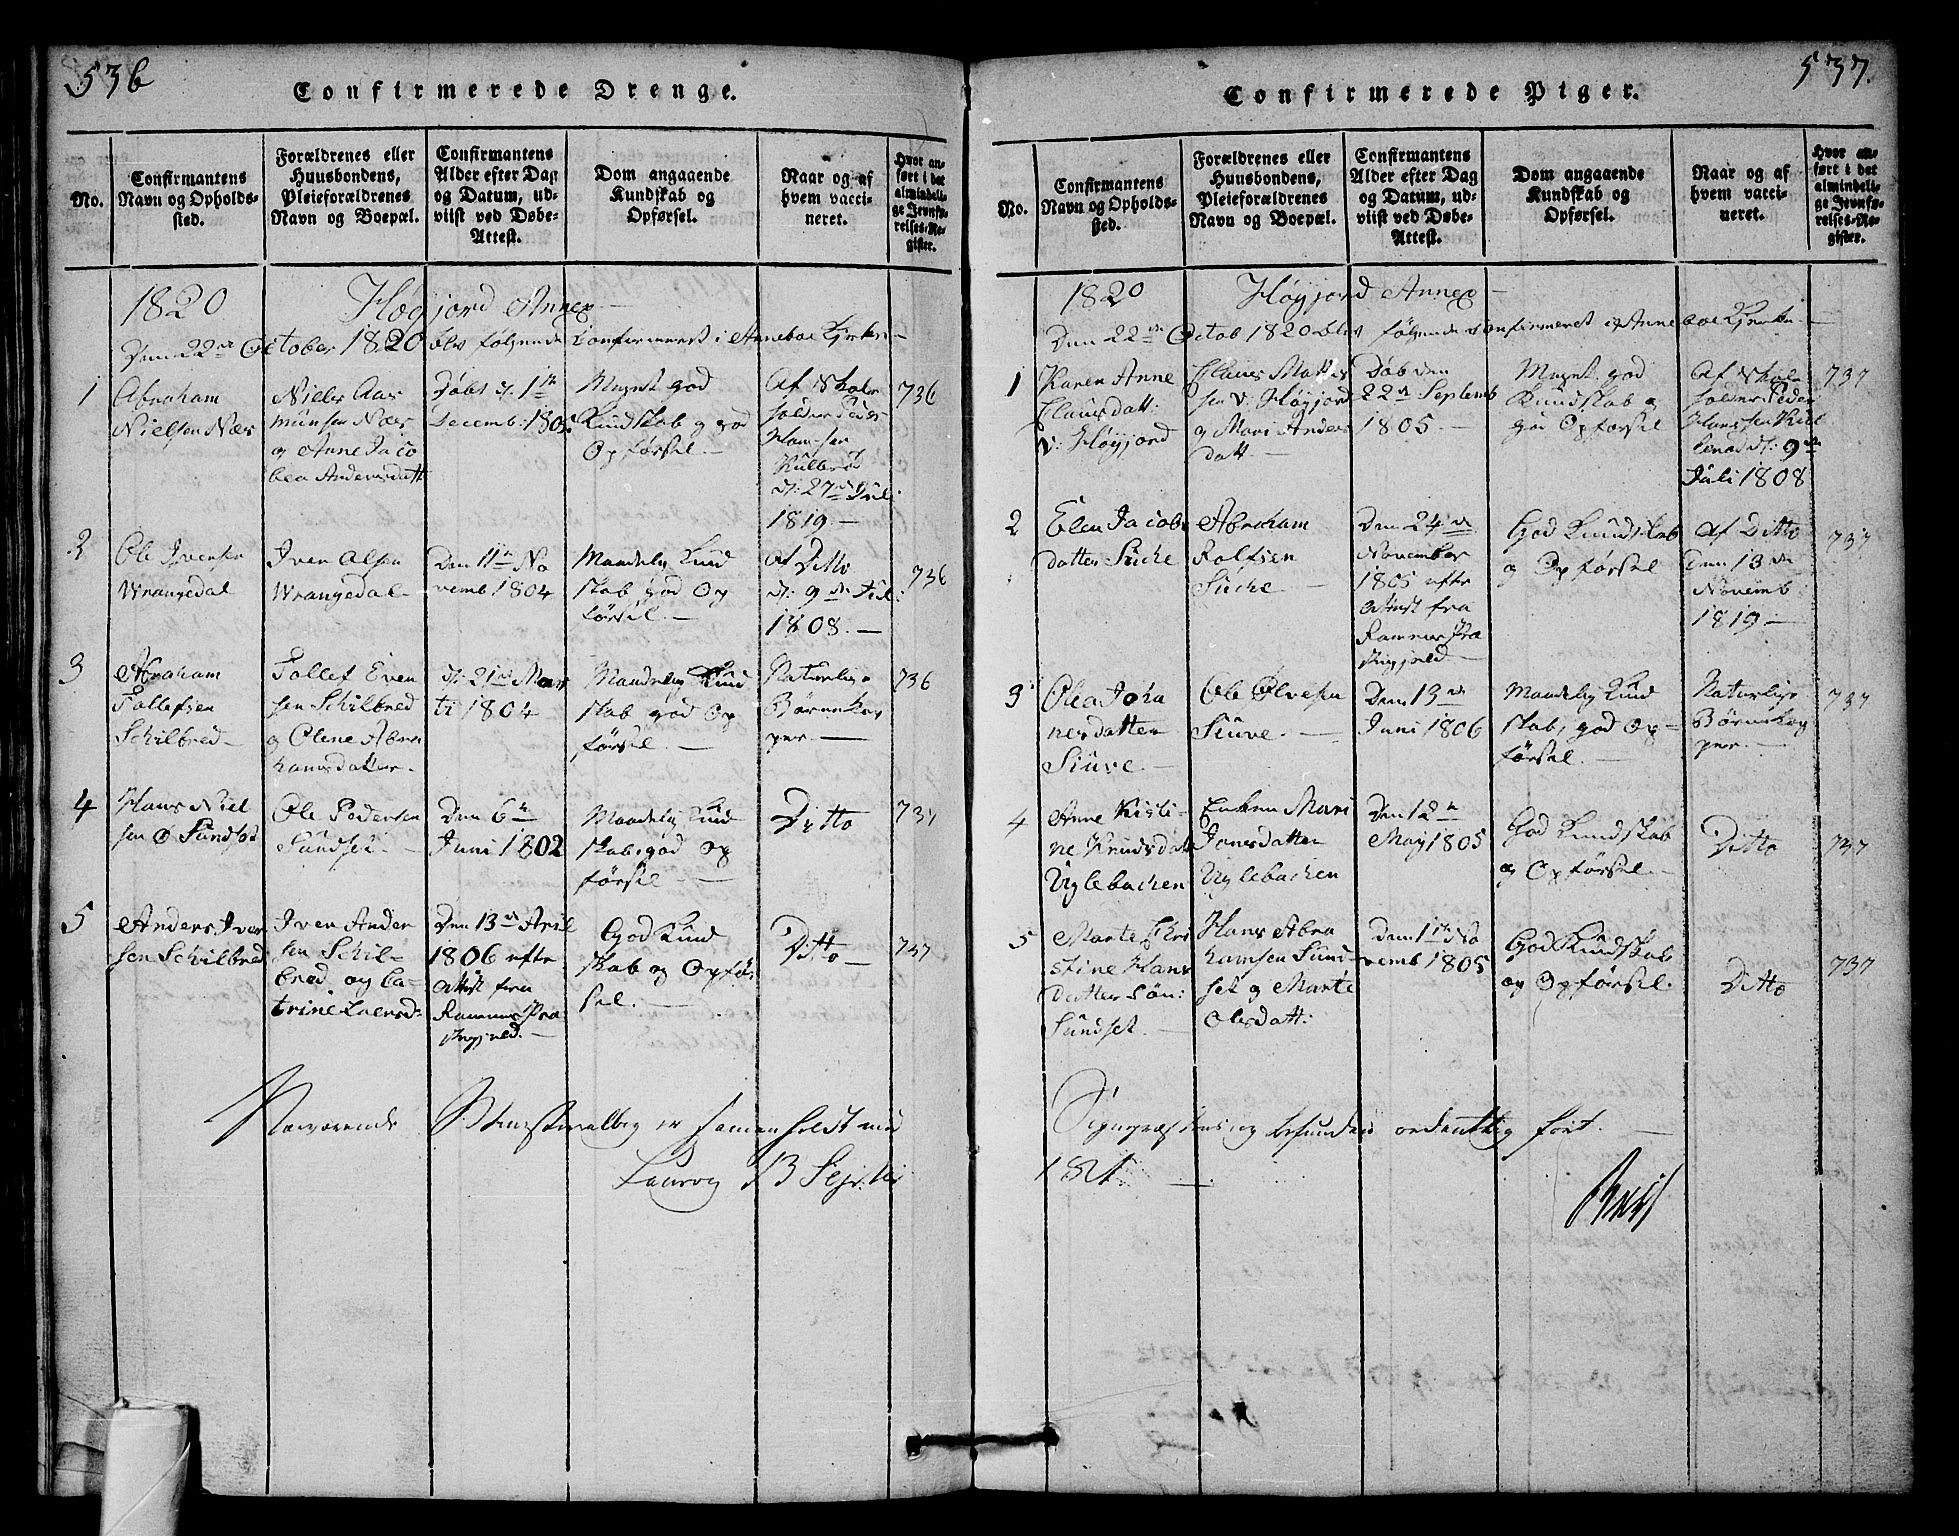 536
Confirmerede Drenge.
No.
Confirmantens
Navn og Opholds-
sted.
Forældrenes eller
Huusbondens,
Pleieforældrenes
Navn og Boepæl.
Confirmantens
Alder efter Dag
og Datum, ud-
viist ved Døbe-
Attest.
Dom angaaende
Kundskab og
Opførsel.
Naar og af
hvem vacci-
neret.
Hvor an-
ført i det
almindeli-
ge Jevnfø-
relses-Re-
gister.
1820 Høyjord Annex
Den 22de October 1820 blev følgende Confirmeret i Anneboe Kirke
1
Abraham
Nielsen Næs
Niels Aas
munsen Næs
og Anne Jaco
bea Andersdatt
Døbt d. 1te
Decemb: 1805
Meget god
Kundskab og god
Opførsel.
Af Skole
holder Peder
Hansen
d: 27de Juli
1819.
736
2
Ole Iversen
Wrangedal
Iven Olsen
Wrangedal
Den 11te No
vemb 1804
Maadelig Kund
skab god Op
førsel.
Af Ditto
d: 9de Juli
1808.
736
3
Abraham
Tollefsen
Schilbred
Tollef Even
sen Schilbred
og Olene Abra
hamsdatter.
d: 21de Mar
ti 1804
Maadelig Kund
skab god Op
førsel.
Naturlige
Børnekop
per.
736
4
Hans Niel
sen Ø Sundset
Ole Pedersen
Sundset.
Den 6te
Juni 1802
Maadelig Kund
skab, god Op
førsel
Ditto
737
5
Anders Iver
sen Schilbred
Iven Ander
sen Schil-
bred og Ca-
trine Laersd:
Den 13de April
1806 efter
Attest fra
Ramnes Præ
stegield.
God Kund
skab og Opfør
sel.
Ditto
737
Nærværende Ministerialbog er sammenholdt med
Laurvig 13 Septbr
537.
Confirmerede Piger.
No.
Confirmantens
Navn og Opholds-
sted.
Forældrenes eller
Huusbondens,
Pleieforældrenes
Navn og Boepæl.
Confirmantens
Alder efter Dag
og Datum, ud-
viist ved Døbe-
Attest.
Dom angaaende
Kundskab og
Opførsel.
Naar og af
hvem vacci-
neret.
Hvor an-
ført i det
almindeli-
ge Jevnfø-
relses-Re-
gister.
1820 Høyjord Annex
Den 22de Octob 1820 blev følgende Confirmeret i Anneboe Kirke.
1
Karen Anne
Clausdatt:
v: Høyjord
Claus Mattis
sen v: Høyjord
og Mari Anders
datt.
Døb den
22de Septemb
1805.
Meget god
Kundskab og
god Opførsel
Af Skole
holder Peder
Hanssen
d: 9de
Juli 1808
737
2
Elen Jacobs
datter Sucke
Abraham
Rolfsen
Sucke
Den 24de
November
1805 efter
Attest fra
Ramnes Præ
stegield
God Kundskab
og Opførsel
Af Ditto
Den 13de
Novemb
1819
737
3
Olea Joha
nesdatter
Siuve
Ole Olvesen
Siuve.
Den 13de
Juni 1806
Maadelig Kund
skab, god Op-
førsel.
Naturlige
Børnekop
per.
737
4
Anne Kisti
ne Knudsdatt
Uglebachen
Enken Mari
Jonsdatter
Uglebachen
Den 12te
May 1805
God Kundskab
og Opførsel.
Ditto
737
5
Marte Chri
stine Hans
datter Søn:
Sundset.
Hans Abra
hamsen Sund
set og Marte
Olesdatt:
Den 1te No
vemb 1805
God Kundskab
og Opførsel.
Ditto
737
og befunden ordentlig ført.
1821